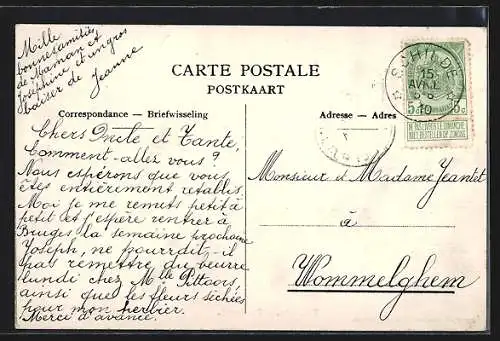 Mille
bonnes amitiés
de Maman et
Joséphine et un gros
baiser de Jeanne
CARTE POSTALE
POSTKAART
Correspondance — Briefwisseling
Adresse — Adres
SCHILDE
15
AVRIL
10
5c 5c
NE PAS LIVRER LE DIMANCHE
NIET BESTELLEN OP ZONDAG
Chers Oncle et Tante,
Comment allez vous?
Nous espérons que vous
êtes entièrement rétablis
Moi je me remets petit à
petit et j'espère rentrer à
Bruges la semaine prochaine
Joseph, ne pourrait-il
pas remettre du beurre
lundi chez M de Pittaors,
ainsi que les fleurs séchées
pour mon herbier.
Merci d'avance.
Monsieur et Madame Jeantet
à
Wommelghem